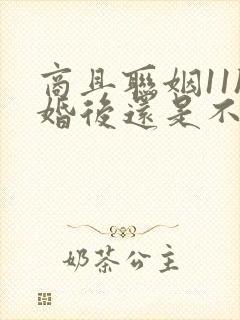 商且聯姻11
婚後還是不
奶茶公主